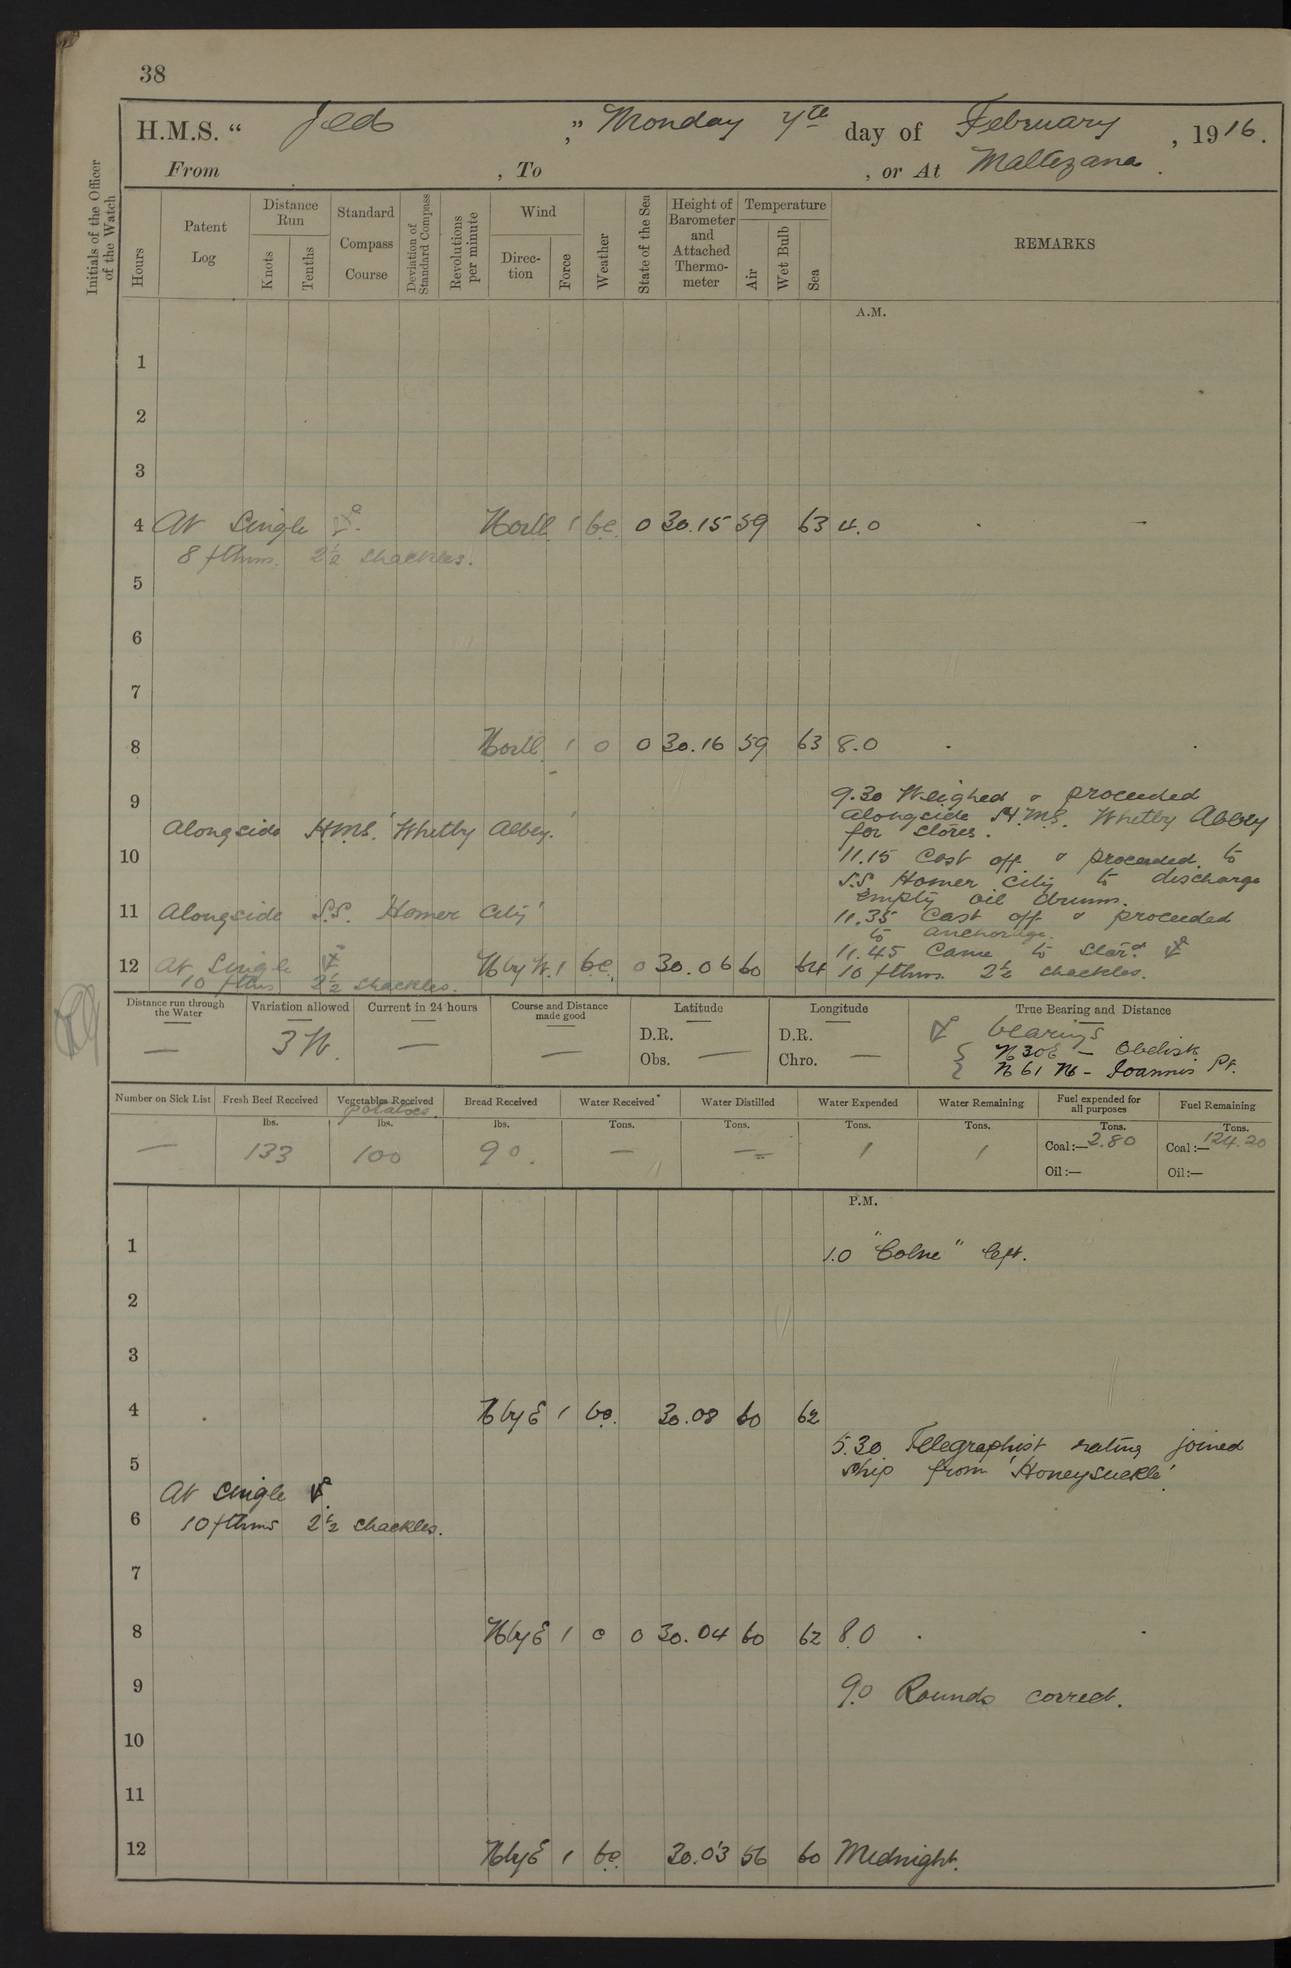 38
H.M.S. "Jed," Monday 7th day of February, 1916.
From , To , or At Maltezana.
Initials of the Officer of the Watch
Hours
Patent Log
Distance Run
Knots
Tenths
Standard Compass Course
Deviation of Standard Compass
Revolutions per minute
Wind
Direction
Force
Weather
State of the Sea
Height of Barometer and Attached Thermometer
Temperature
Air
Wet Bulb
Sea
REMARKS
A.M.
1
2
3
4 At Single ⚓. North 1 bc. 0 30.15 59 63 4.0
8 fthms. 2½ shackles.
5
6
7
8 North 1 0 0 30.16 59 63 8.0
9 9.30 Weighed & proceeded
Alongside H.M.S. 'Whitby Abbey.' alongside H.M.S. Whitby Abbey
for stores.
10 11.15 Cast off & proceeded to
S.S. Homer City to discharge
empty oil drums.
11 Alongside S.S. 'Homer City' 11.35 Cast off & proceeded
to anchorage.
12 At Single ⚓ N by W. 1 bc. 0 30.06 60 64 11.45 Came to Starbd ⚓
10 fthms 2½ shackles. 10 fthms 2½ shackles.
Distance run through the Water
Variation allowed
Current in 24 hours
Course and Distance made good
Latitude
Longitude
True Bearing and Distance
— 3 W. — — D.R. Obs. — D.R. Chro. —
⚓ bearings
N 30 E – Obelisk
N 61 W – Ioannis Pt.
Number on Sick List
Fresh Beef Received
Vegetables Received
Potatoes.
Bread Received
Water Received
Water Distilled
Water Expended
Water Remaining
Fuel expended for all purposes
Fuel Remaining
lbs. lbs. lbs. Tons. Tons. Tons. Tons. Tons. Tons.
— 133 100 90. — — 1 1 Coal:— 2.80 Coal:— 124.20
Oil:— Oil:—
P.M.
1 1.0 "Colne" left.
2
3
4 N by E 1 bc. 30.08 60 62
5.30 Telegraphist rating joined
5 ship from 'Honeysuckle'.
At single ⚓.
6 10 fthms 2½ shackles.
7
8 N by E 1 c 0 30.04 60 62 8.0
9 9.0 Rounds correct.
10
11
12 N by E 1 bc. 30.03 56 60 Midnight.